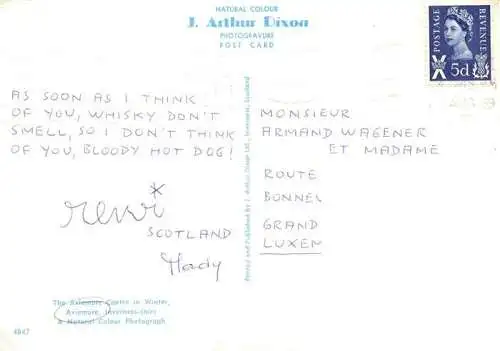 NATURAL COLOUR
J. Arthur Dixon
PHOTOGRAVURE
POST CARD
POSTAGE
REVENUE
5d
AS SOON AS I THINK
OF YOU, WHISKY DON'T
SMELL, SO I DON'T THINK
OF YOU, BLOODY HOT DOG!
SCOTLAND
Mady
MONSIEUR
ARMAND WAGENER
ET MADAME
ROUTE
BONNEL
GRAND
LUXEM
Printed and Published by J. Arthur Dixon Ltd., Inverness, Scotland
The Aviemore Centre in Winter,
Aviemore, Inverness-shire
A Natural Colour Photograph
4847